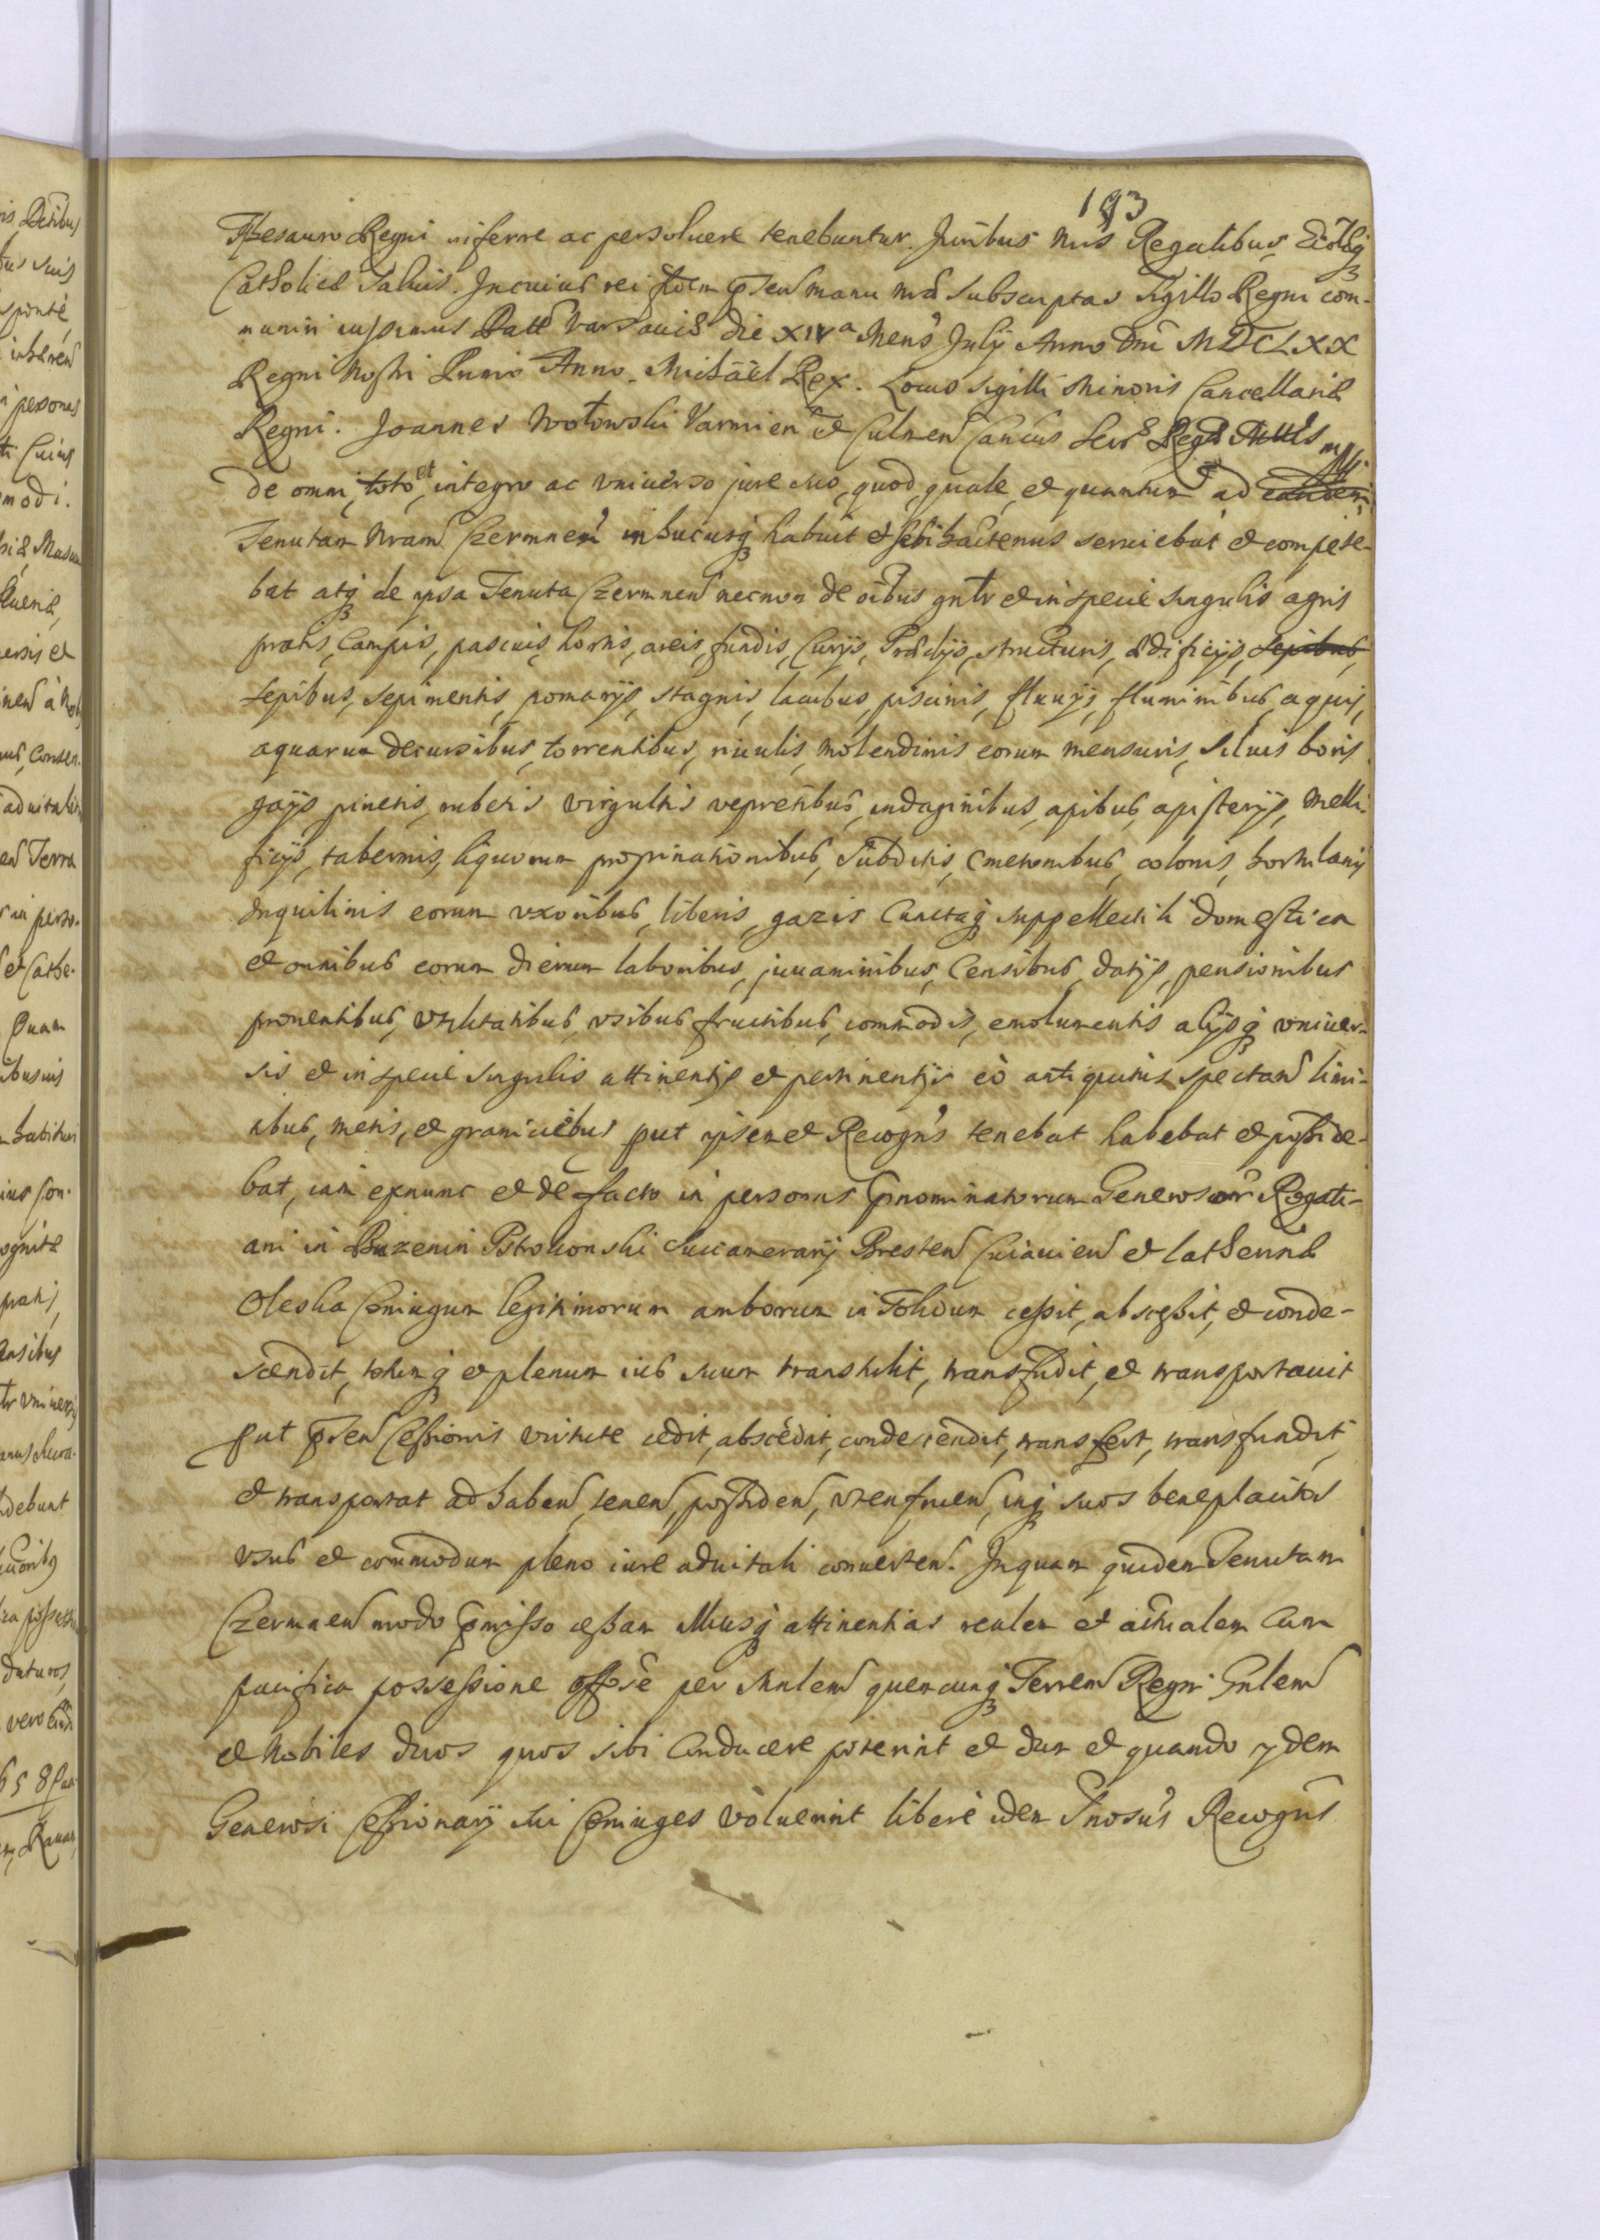 193
Thesauro Regni inferre ac persoluere tenebuntur. Juribus Nris Regalibus, Ecclæq
Catholicæ saluis. Incuius rei fidem pñtes manu nrã subscriptas sigillo Regni com-
muniri iussimus Datt Varsauiæ die XIVa Mens July Anno Dni MDCLXX
Regni Nostri Primo Anno. Michaël Rex. Locus sigilli Minoris Cancellariæ
Regni. Joannes Wołowski Varmien et Culmen Cancus Secrs Regiæ Mttis mp.
de omni, toto et, integro ac vniuerso jure suo, quod, quale, et quantum ad eandem
Tenutam Nram Czermnen in hucusq habuit et sibi hactenus seruiebat et compete-
bat atq de ipsa Tenuta Czermnen necnon de oibus gnlr et in specie singulis agris
pratis, campis, pascuis, hortis, areis, fundis, Curijs, Prædijs, structuris, ædificijs, sepibus,
sepibus, sepimentis, pomarijs, stagnis, lacubus, piscinis, fluuijs, fluminibus, aquis,
aquarum decursibus, torrentibus, riuulis, molendinis eorum mensuris, siluis boris
gajis pinetis, rubetis virgultis vepretibus, indaginibus, apibus, apisterijs, melli-
ficijs, tabernis, liquorum propinationibus, Subditis, Cmetonibus, colonis, hortulanis
Inquilinis eorum vxoribus, liberis, gazis Cunctaq suppellectili domestica
et omnibus eorum dierum laboribus, juuaminibus, Censibus, datijs, pensionibus
prouentibus, vtilitatibus, vsibus fructibus, commodis, emolumentis alijsq vniuer-
sis et in specie singulis attinentijs et pertinentijs eò antiquitus spectan limi-
tibus, metis, et granicièbus put ipsemet Recogns tenebat habebat et posside-
bat, iam exnunc et de facto in personas Pnominatorum Generosor Rogati-
ani in Buzenin Pstrokonski Succamerarij Bresten Cuiauien et Catherinæ
Oleska Coniugum legitimorum amborum in solidum cessit, abscessit, et conde-
scendit, totumq et plenum ius suum transtulit, transfudit, et transportauit
Put pñen Cessionis virtute cedit, abscedit, condescendit, transfert, transfundit
et transportat ad haben, tenen, possiden, vtenfruen, inq suos beneplacitos
vsus et commodum pleno iure aduitali conuerten. In quam quidem Tenutam
Czermnen modo Pmisso cessam illiusq attinentias realem et actualem Cum
pacifica possessione per Mnlem quencunq Terren Regni Gnlem
et Nobiles duos quos sibi conducere poterint et dum et quando ydem
Generosi Cessionarij sui Coniuges voluerint liberè idem Recogns